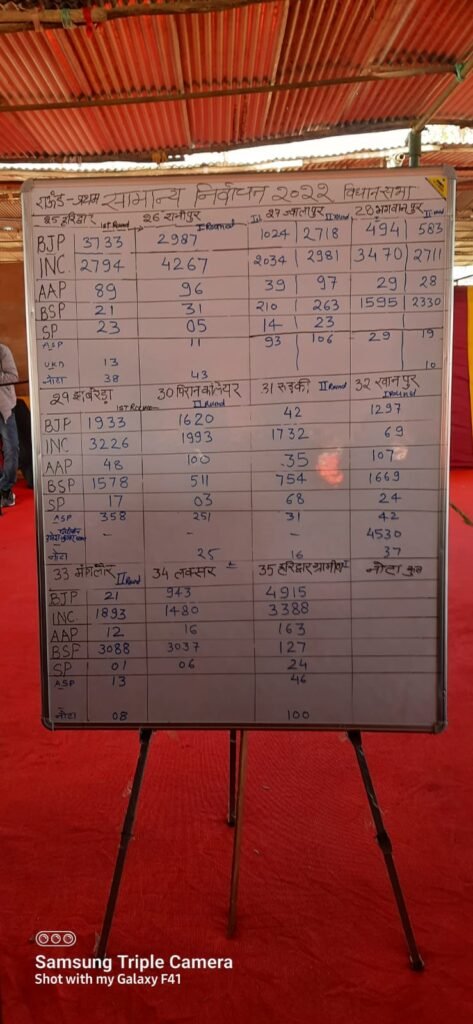 राउंड-प्रथम सामान्य निर्वाचन २०२२ विधानसभा
25 हरिद्वार 1st Round 26 रानीपुर I Round 27 ज्वालापुर Ist II Round 28 भगवानपुर I II Round
BJP 3733 2987 1024 2718 494 583
INC. 2794 4267 2034 2981 3470 2711
AAP 89 96 39 97 29 28
BSP 21 31 210 263 1595 2330
SP 23 05 14 23
ASP 11 93 106 29 19
UKD 13 10
नोटा 38 43
29 झबरेड़ा 1st Round 30 पिरान कलियर II Round 31 रुड़की II Round 32 खानपुर I Round
BJP 1933 1620 42 1297
INC 3226 1993 1732 69
AAP 48 100 35 107
BSP 1578 511 754 1669
SP 17 03 68 24
ASP 358 251 31 42
- - - 4530
नोटा 25 16 37
33 मंगलौर II Round 34 लक्सर I 35 हरिद्वार ग्रामीण नोटा कुल
BJP 21 943 4915
INC. 1893 1480 3388
AAP 12 16 163
BSP 3088 3037 127
SP 01 06 24
ASP 13 46
नोटा 08 100
Samsung Triple Camera
Shot with my Galaxy F41